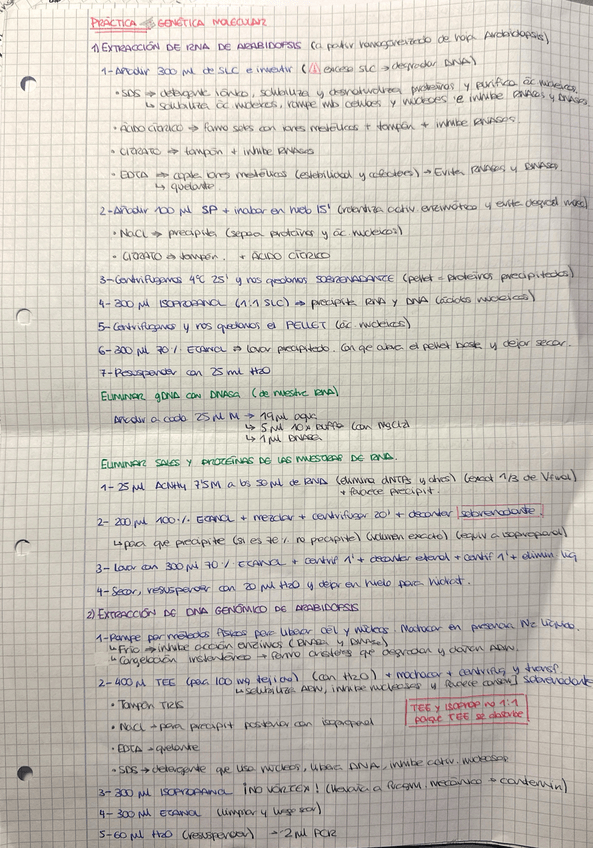 PRÁCTICA GENÉTICA MOLECULAR
1) EXTRACCIÓN DE RNA DE ARABIDOPSIS (a partir homogeneizado de hoja Arabidopsis)
1- Añadir 300 μl de SLC e invertir (⚠ exceso SLC → degradar DNA)
• SDS → detergente iónico, solubiliza y desnaturaliza proteínas y purifica ác nucleicos.
↳ solubiliza ác nucleicos, rompe mb células y núcleos e inhibe RNAsas y DNAsas.
• ÁCIDO CÍTRICO → forma sales con iones metálicos + tampón + inhibe RNASAS.
• CITRATO → tampón + inhibe RNASAS
• EDTA → iones metálicos (estabilidad y cofactores) → Evita RNASAS y DNASAS
↳ quelante.
2- Añadir 100 μl SP + incubar en hielo 15' (ralentiza activ enzimática y evita degrad)
• NaCl → precipita (separa proteínas y ác nucleicos)
• CITRATO → tampón. + ÁCIDO CÍTRICO
3- Centrifugamos 4ºC 25' y nos quedamos SOBRENADANTE (pellet = proteínas precipitadas)
4- 300 μl ISOPROPANOL (1:1 SLC) → precipita RNA y DNA (ácidos nucleicos)
5- Centrifugamos y nos quedamos el PELLET (ác nucleicos)
6- 300 μl 70% ETANOL → lavar precipitado. Con que cubra el pellet basta y dejar secar.
7- Resuspender con 25 ml H2O
ELIMINAR gDNA CON DNASA (de nuestro RNA)
Añadir a cada 25 μl M → 19 μl agua
↳ 5 μl 10x Buffer con MgCl2
↳ 1 μl DNASA
ELIMINAR SALES Y PROTEÍNAS DE LAS MUESTRAS DE RNA.
1- 25 μl ACNH4 7'5M a los 50 μl de RNA (elimina dNTPs y otros) (exact 1/3 de V final)
+ favorece precipit.
2- 200 μl 100% ETANOL + mezclar + centrifugar 20' + decantar sobrenadante.
↳ para que precipite (si es 70% no precipita) (volumen exacto) (equiv a isopropanol)
3- Lavar con 300 μl 70% ETANOL + centrif 1' + decantar etanol + centrif 1' + elimin. liq
4- Secar, resuspender con 20 μl H2O y dejar en hielo para hidrat.
2) EXTRACCIÓN DE DNA GENÓMICO DE ARABIDOPSIS
1- Rompe por métodos físicos para liberar cél y núcleos. Machacar en presencia N2 líquido.
↳ Frío → inhibe acción enzimas (RNAsas y DNAsas)
↳ Congelación instantánea → forma cristales que degradan y dañan ADN.
2- 400 μl TEE (para 100 mg tejido) (con H2O) + machacar + centrifug y transf.
↳ solubiliza ADN, inhibe nucleasas y favorece conserv] sobrenadante
• Tampón TRIS
• NaCl → para precipit posterior con isopropanol
• EDTA → quelante
• SDS → detergente que lisa núcleos, libera DNA, inhibe activ. nucleasas
TEE y ISOPROP no 1:1
porque TEE se absorbe
3- 300 μl ISOPROPANOL ¡NO VÓRTEX! (llevaría a fragm mecánica + contamin)
4- 300 μl ETANOL (limpiar y luego secar)
5- 60 μl H2O (resuspender) → 2 μl PCR